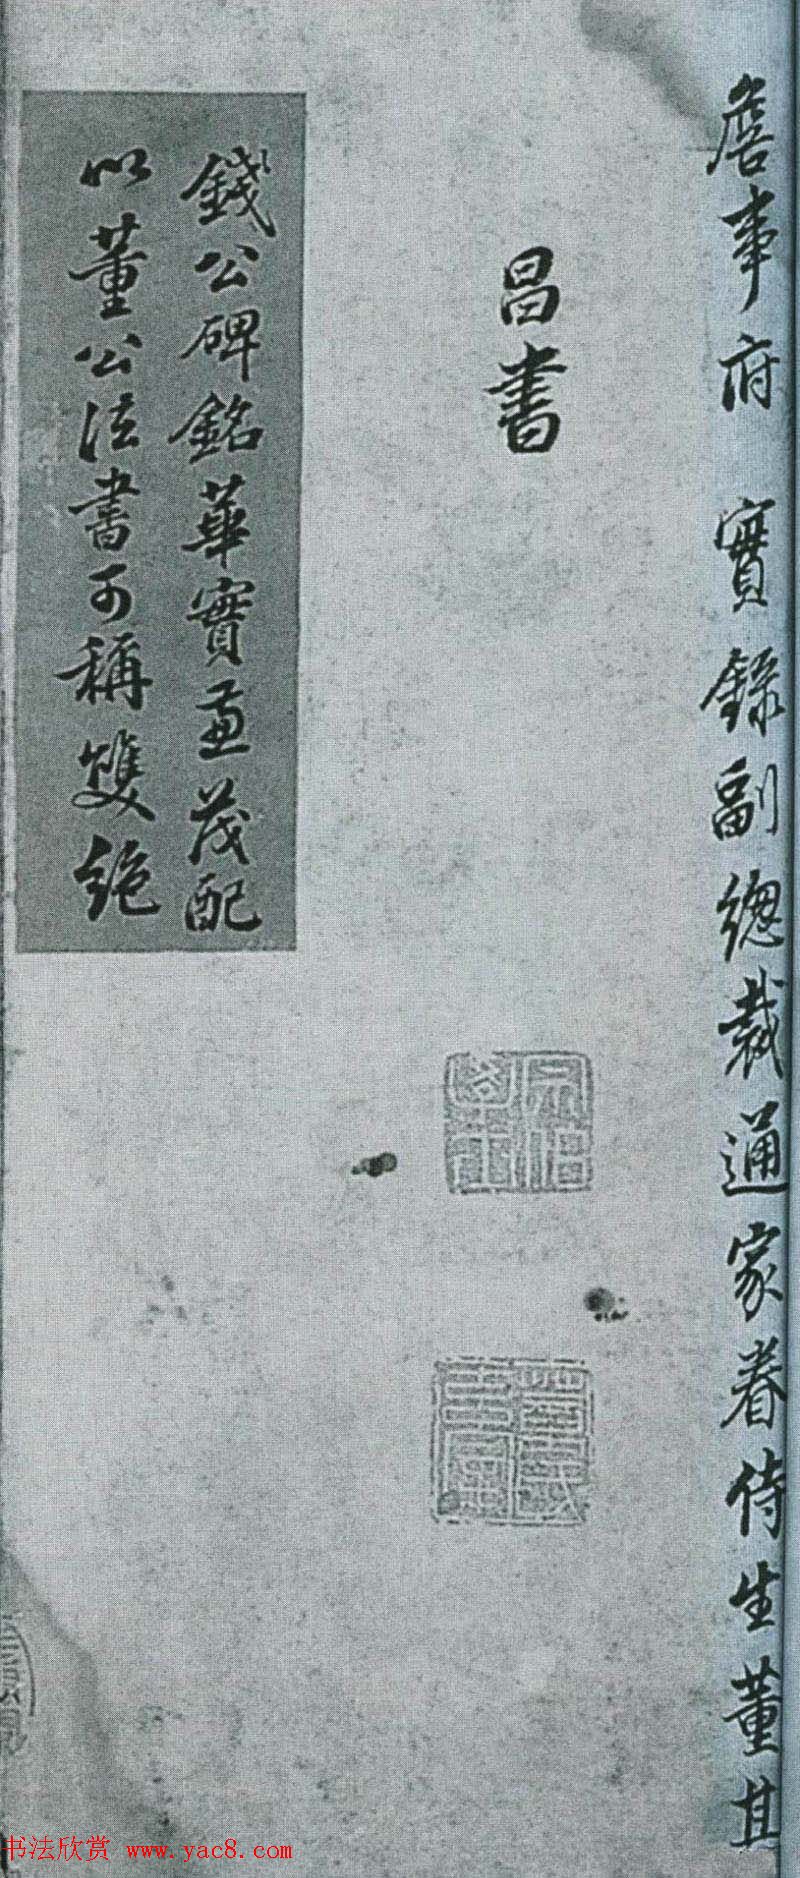 詹事府實錄副總裁通家眷侍生董其
昌書
錢公碑銘華實並茂配
以董公法書可稱雙絕
书法欣赏 www.yac8.com